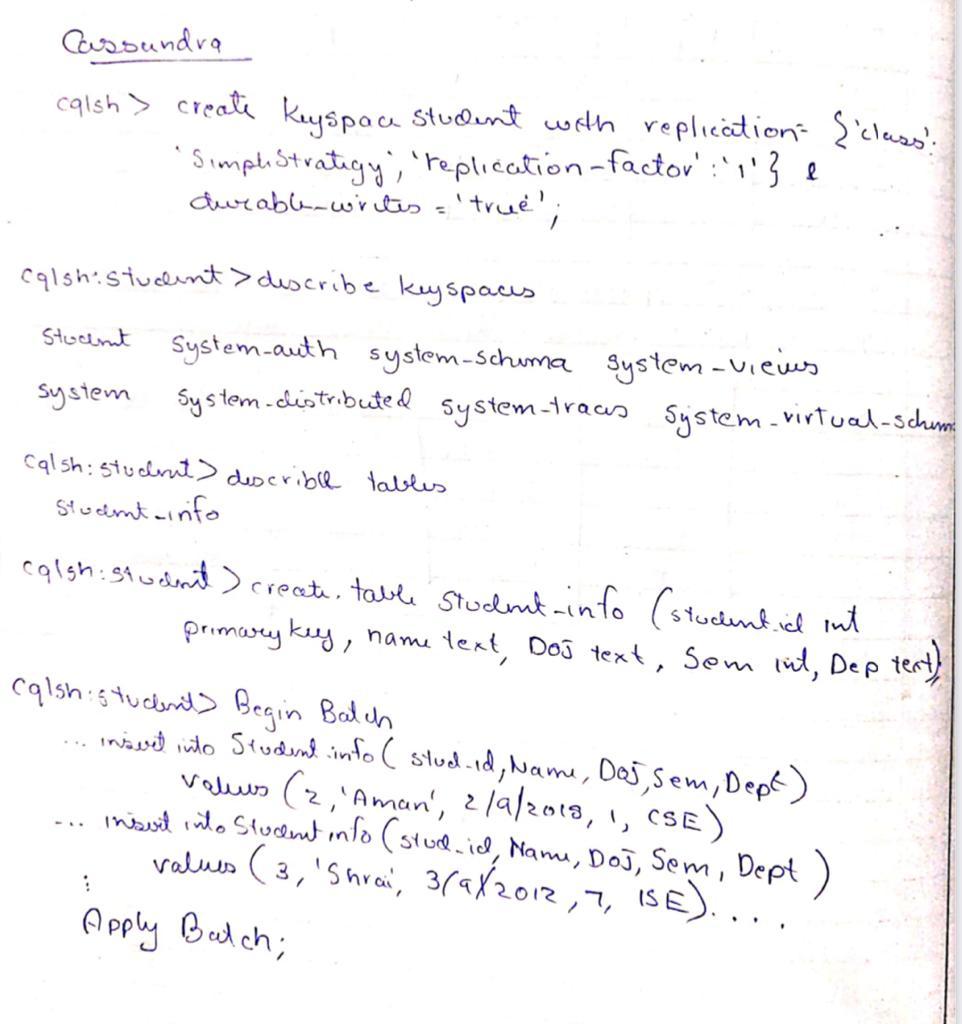 Cassandra
cqlsh > create keyspace student with replication = {'class':
'SimpleStrategy', 'replication-factor' : '1' }
durable-writes = 'true';
cqlsh:student > describe keyspaces
student system-auth system-schema system-views
system system-distributed system-traces system-virtual-schem
cqlsh:student> describe tables
student-info
cqlsh:student > create table Student-info (student.id int
primary key, name text, DOJ text, Sem int, Dep text);
cqlsh:student> Begin Batch
... insert into Student.info ( stud-id, Name, DOJ, Sem, Dept )
values (2, 'Aman', 2/9/2018, 1, CSE)
... insert into Student info (stud-id, Name, DOJ, Sem, Dept )
values (3, 'Shrai, 3/9/2012, 7, ISE). . . .
⋮
Apply Batch;